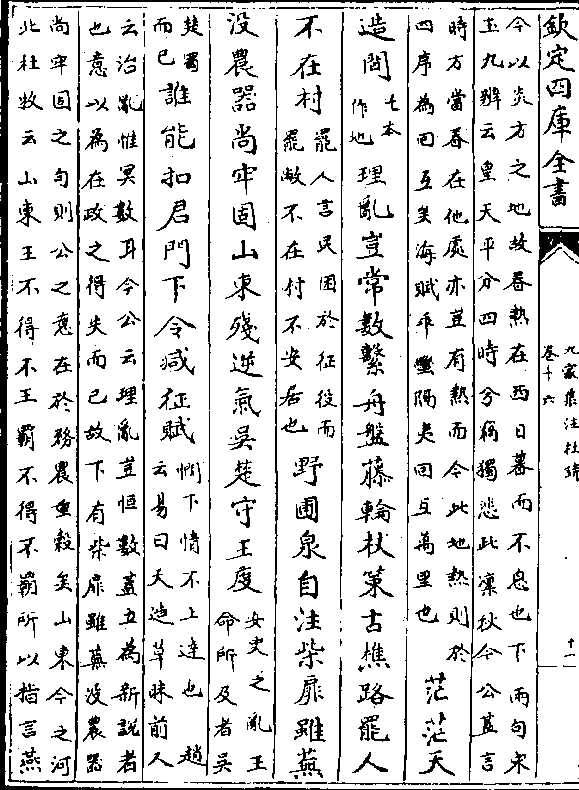 欽定四庫全書
九家集注杜詩
卷十六
十一
今以炎方之地故春熱在西日暮而不息也下兩句宋
玉九辯云皇天平分四時兮竊獨悲此凛秋今公甚言
時方當春在他處亦豈有熱而今此地熱則於
四序為回互矣海賦乖蠻隔夷回互萬里也
茫茫天
造間
七本
作地
理亂豈常數繫舟盤藤輪杖策古樵路罷人
不在村
罷人言民困於征役而
罷敝不在村不安居也
野圃泉自注柴扉雖蕪
没農器尚牢固山東殘逆氣吳楚守王度
安史之亂王
命所及者吳
楚蜀
而已
誰能扣君門下令减征賦
憫下情不上達也 趙
云易曰天造草昧前人
云治亂惟冥數耳今公云理亂豈恒數盖立為新說者
也意以為在政之得失而已故下有柴扉雖蕪没農器
尚牢固之句則公之意在於務農重穀矣山東今之河
北杜牧云山東王不得不王霸不得不霸所以指言燕